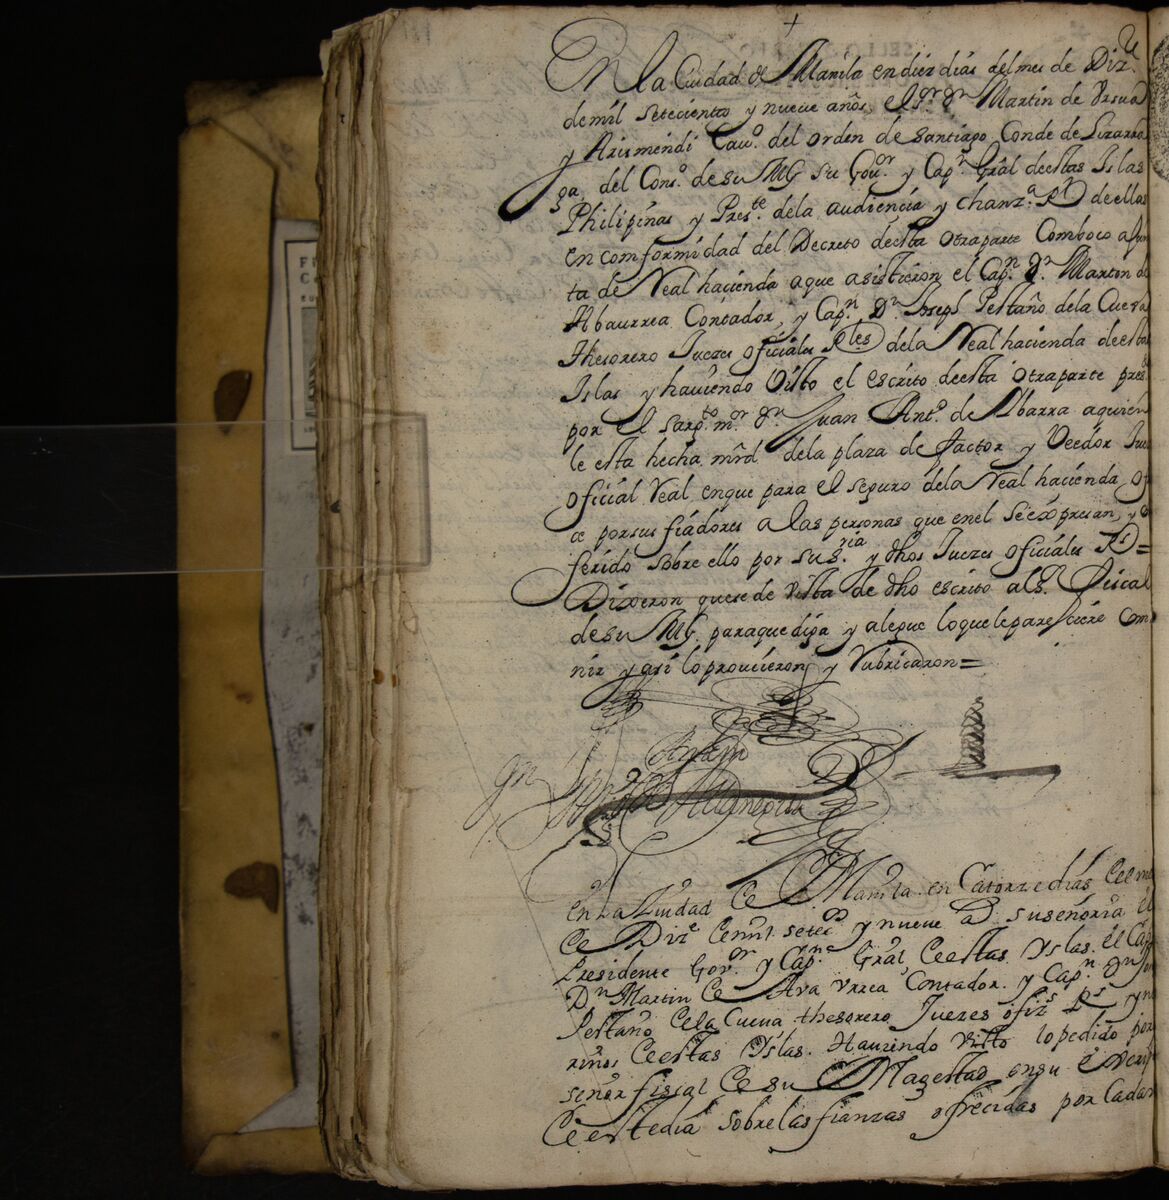 +
En la Ciudad de Manila en diez dias del mes de Diz.e
de mil setecientos y nueve años el s.or Dn Martin de Vrsua
y Arismendi Cavo. del orden de santiago Conde de Lizarra
ga del Cons.o de su Mg su Gov.or y Cap.n Gral de estas Islas
Philipinas y Pres.te de la audiencia y chanz.a Rl de ellas
en comformidad del Decreto de esta otra parte Comboco a Jun
ta de Real hacienda a que asistieron el Cap.n Dn Martin de
Abaurrea Contador, y Cap.n Dn Joseph Pestaño de la Cueva
Thesorero Juezes oficiales Rles de la Real hacienda de estas
Islas y haviendo Visto el escrito de esta otra parte pres.do
por el sarg.to m.or Dn Juan Ant.o de Ybarra a quien
le esta hecha mrd de la plaza de factor y Veedor Juez
oficial Real en que para el seguro de la Real hacienda of
ce por sus fiadores a las personas que en el se expresan, y
ferido sobre ello por su s.ria y dhos Juezes oficiales Rs =
Dixeron que se de vista de dho escrito al s.r Fiscal
de su Mg. para que diga y alegue lo que le paresciere com
nir y asi lo proveieron y Rubricaron =
Antem
En la Ziudad de Manila en Catorze dias del me
de Diz.e de mil setec.os y nueve a.s su señoria el
Presidente Gov.or y Cap.n Gral de estas Yslas. el Cap
Dn Martin de Ava urrea Contador. y Cap.n Dn Jos
Pestaño de la Cueva thesorero Juezes ofiz.s Rs y
riños de estas Yslas. Haviendo visto lo pedido por
señor fiscal de su Magestad en su escrip
de este dia sobre las fianzas ofrecidas por